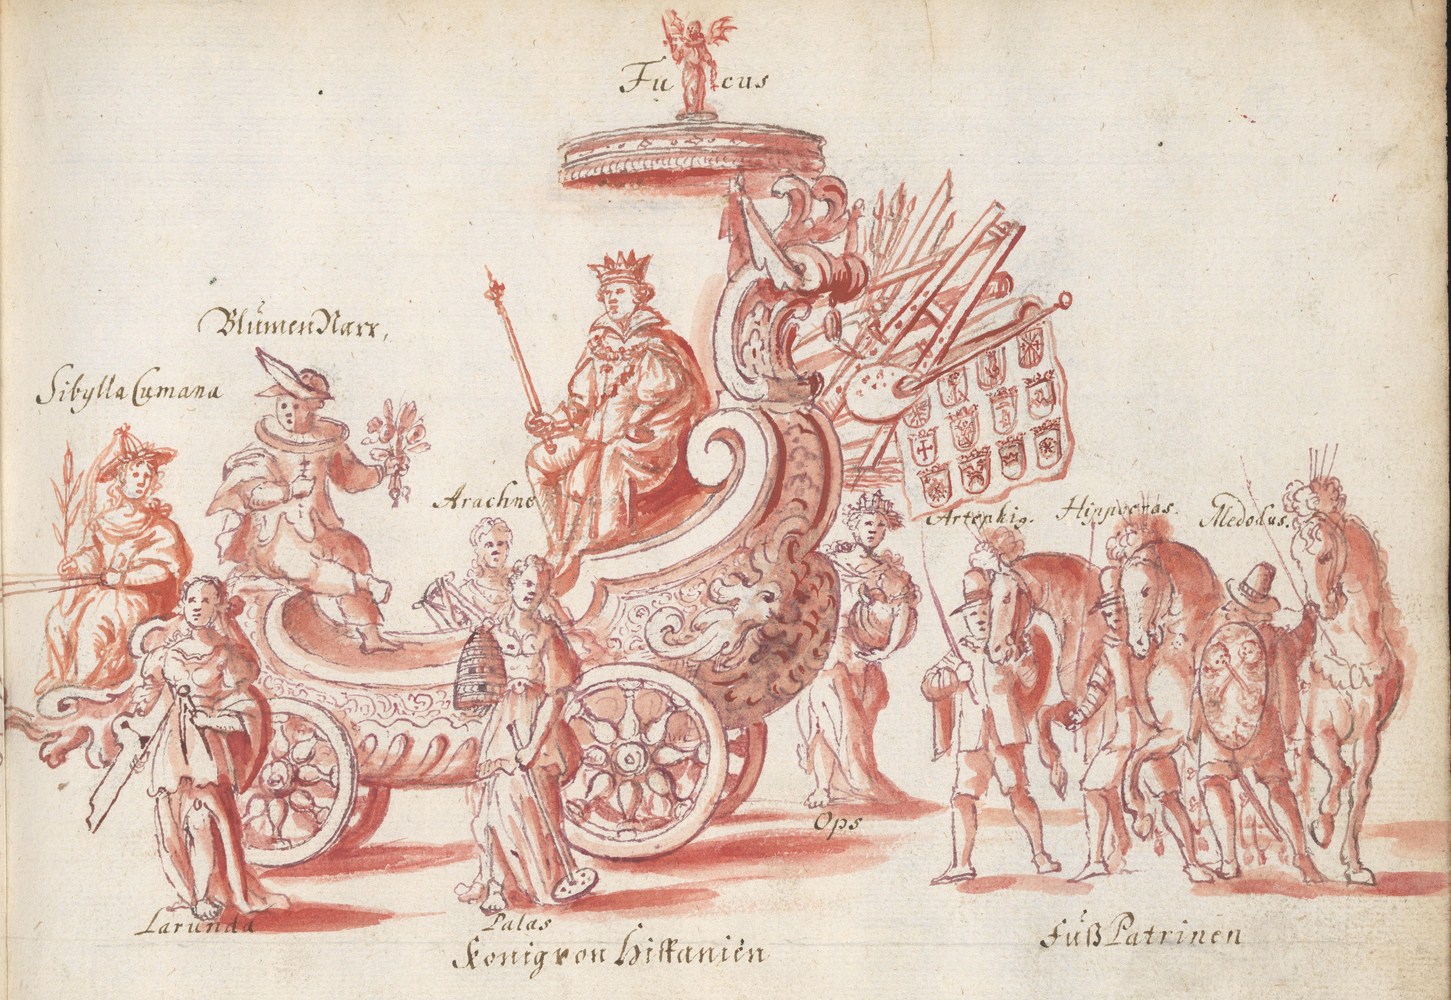 Fucus
Blümen Narr,
Sibylla Cumana
Arachne
Artephig. Hippocras. Medodus.
Ops
Larunda
Palas
König von Hiſpanien
Füß Patrinen